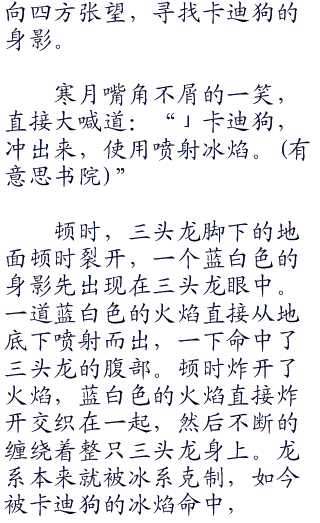 向四方张望，寻找卡迪狗的
身影。
寒月嘴角不屑的一笑，
直接大喊道：“」卡迪狗，
冲出来，使用喷射冰焰。(有
意思书院)”
顿时，三头龙脚下的地
面顿时裂开，一个蓝白色的
身影先出现在三头龙眼中。
一道蓝白色的火焰直接从地
底下喷射而出，一下命中了
三头龙的腹部。顿时炸开了
火焰，蓝白色的火焰直接炸
开交织在一起，然后不断的
缠绕着整只三头龙身上。龙
系本来就被冰系克制，如今
被卡迪狗的冰焰命中，